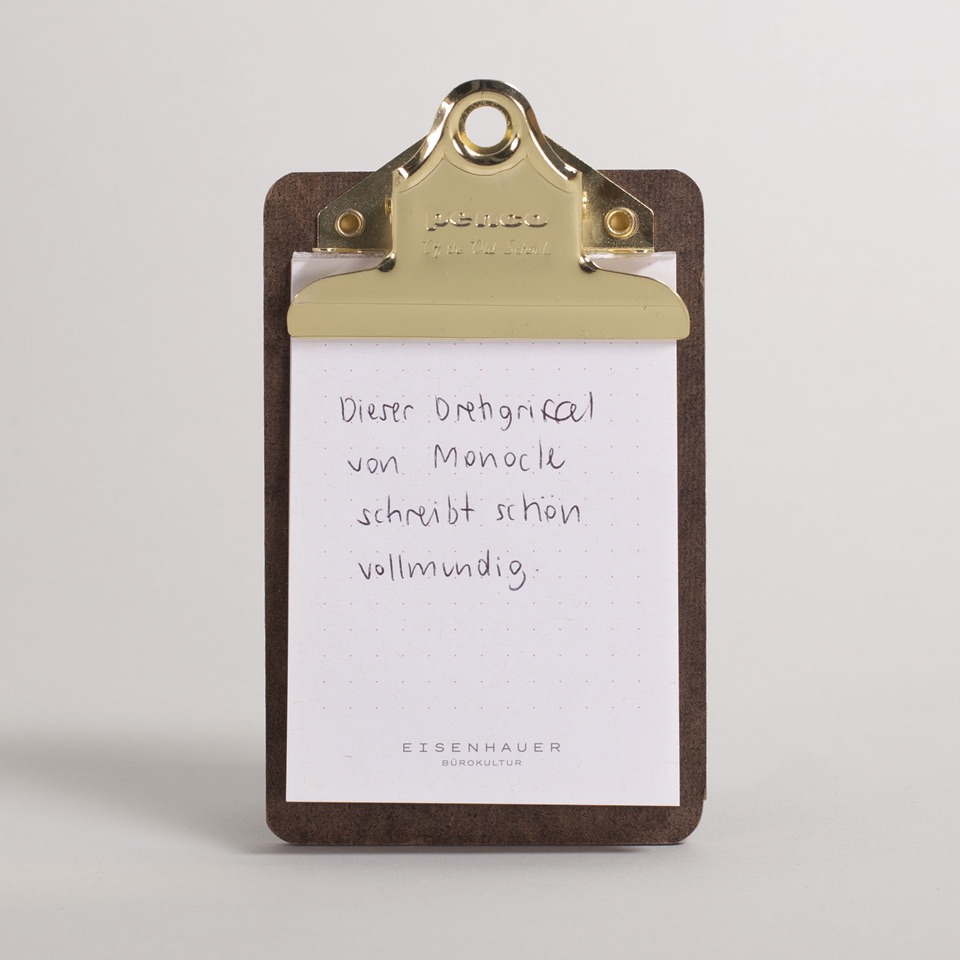 penco
Dieser Drehgriffel
von Monocle
schreibt schön
vollmundig.
EISENHAUER
BÜROKULTUR